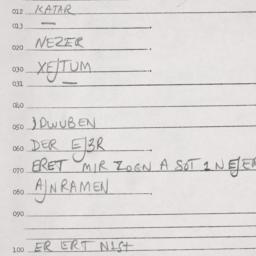 012 KATAR
013
020 NEZER
030 XEJTUM
031
040
050 IDWUBEN
060 DER EJ3R
070 ERET MIR ZOGN A SOT 1 N EJER
080 AJNRAMEN
090
100 ER ERT NIST